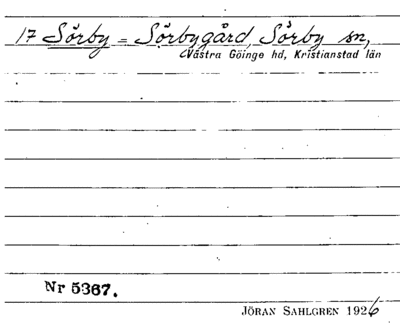 17 Sörby = Sörbygård, Sörby sn,
Västra Göinge hd, Kristianstad län
Nr 5367.
JÖRAN SAHLGREN 1926